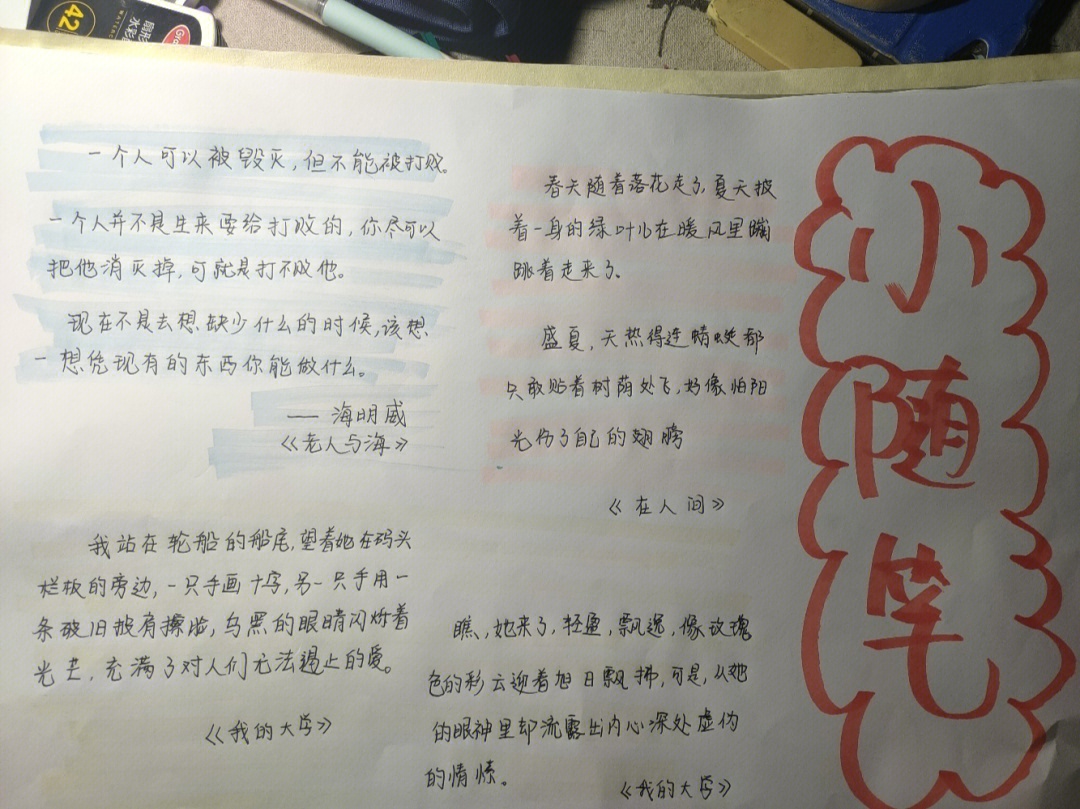 一个人可以被毁灭，但不能被打败。
一个人并不是生来要给打败的，你尽可以
把他消灭掉，可就是打不败他。
现在不是去想缺少什么的时候，该想
一想凭现有的东西你能做什么。
—— 海明威
《老人与海》
春天随着落花走了，夏天披
着一身的绿叶儿在暖风里蹦
跳着走来了。
盛夏，天热得连蜻蜓都
只敢贴着树荫处飞，好像怕阳
光伤了自己的翅膀
《在人间》
我站在轮船的船尾，望着她在码头
栏板的旁边，一只手画十字，另一只手用一
条破旧披肩擦脸，乌黑的眼睛闪烁着
光芒，充满了对人们无法遏止的爱。
《我的大学》
瞧，她来了，轻盈，飘逸，像玫瑰
色的彩云迎着旭日飘拂，可是，从她
的眼神里却流露出内心深处虚伪
的情愫。
《我的大学》
小
随
笔
42
水彩